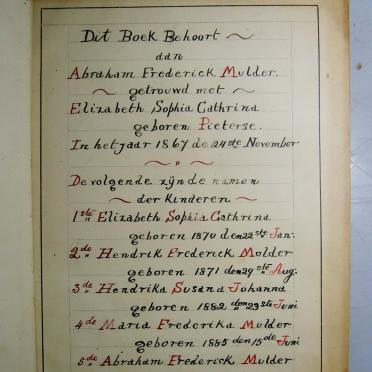 Dit Boek Behoort
aan
Abraham Frederick Mulder.
getrouwd met
Elizabeth Sophia Cathrina
geboren Pieterse.
In het jaar 1867 de 24ste November
De volgende zÿnde namen
der Kinderen
1ste Elizabeth Sophia Cathrina
geboren 1870 den 22ste Jan:
2de Hendrik Frederick Molder
geboren 1871 den 29ste Aug:
3de Hendrika Susana Johanna
geboren 1882 den 23ste Juni
4de Maria Frederika Mulder
geboren 1885 den 15de Juni
5de Abraham Frederick Mulder